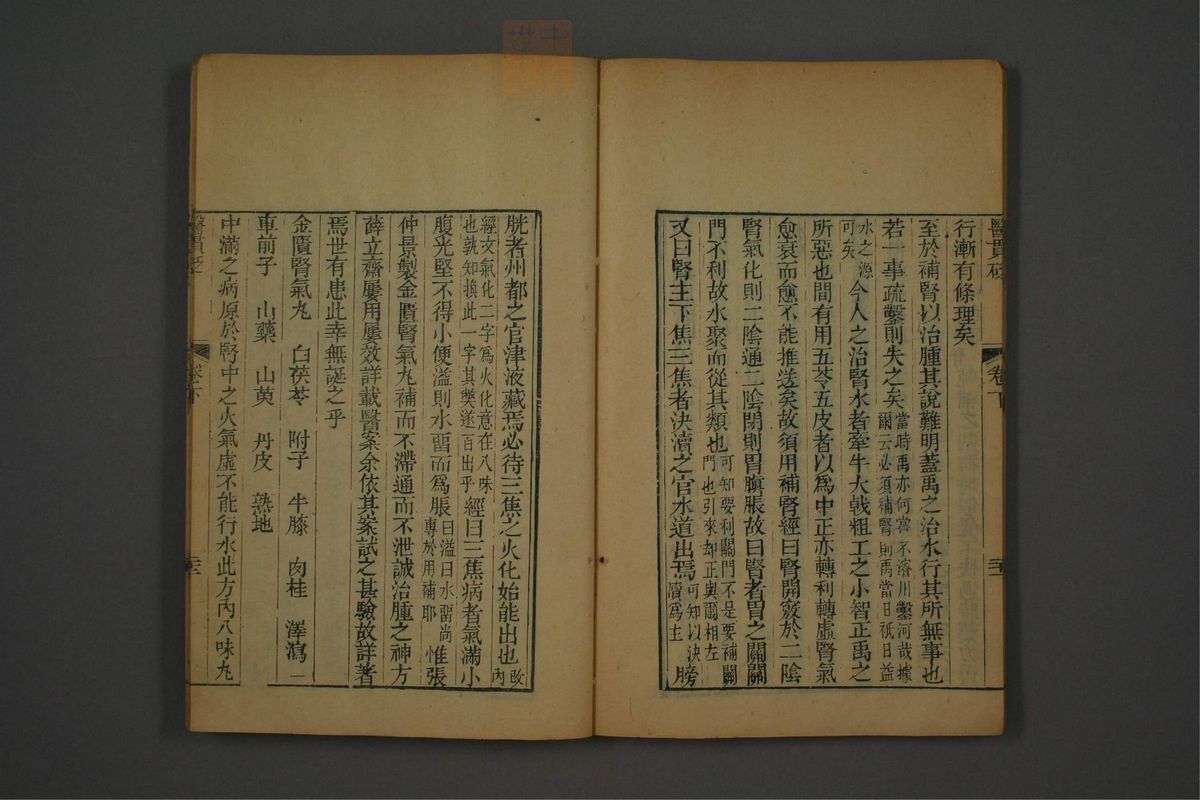 醫貫砭
卷下
行漸有條理矣
至於補腎以治腫其說難明蓋禹之治水行其所無事也
若一事疏鑿則失之矣當時禹亦何嘗不濬川鑿河哉據爾云必須補腎則禹當日祇日益
水之源可矣今人之治腎水者牽牛大戟粗工之小智正禹之
所惡也間有用五苓五皮者以爲中正亦轉利轉虛腎氣
愈衰而愈不能推送矣故須用補腎經曰腎開竅於二陰
腎氣化則二陰通二陰閉則胃䐜脹故曰腎者胃之關關
門不利故水聚而從其類也可知要利關門不是要補關門也引來却正與爾相左
又曰腎主下焦三焦者決瀆之官水道出焉可知以決瀆爲主膀
胱者州都之官津液藏焉必待三焦之火化始能出也改內
經文氣化二字爲火化意在八味也孰知換此一字其弊遂百出乎經曰三焦病者氣滿小
腹光堅不得小便溢則水留而爲脹曰溢曰水留尚專於用補耶惟張
仲景製金匱腎氣丸補而不滯通而不泄誠治腫之神方
薛立齋屢用屢效詳載醫案余依其案試之甚驗故詳著
焉世有患此幸無誕之乎
金匱腎氣丸 白茯苓 附子 牛膝 肉桂 澤瀉一
車前子 山藥 山萸 丹皮 熟地
中滿之病原於腎中之火氣虛不能行水此方內八味丸
醫貫砭
卷下